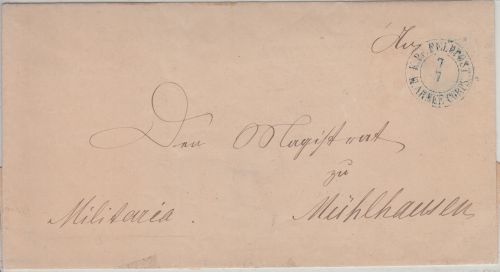 An
K. Pr. FELDPOST
7
7
ARMEE CORPS
Den Magistrat
zu
Militaria. Mühlhausen